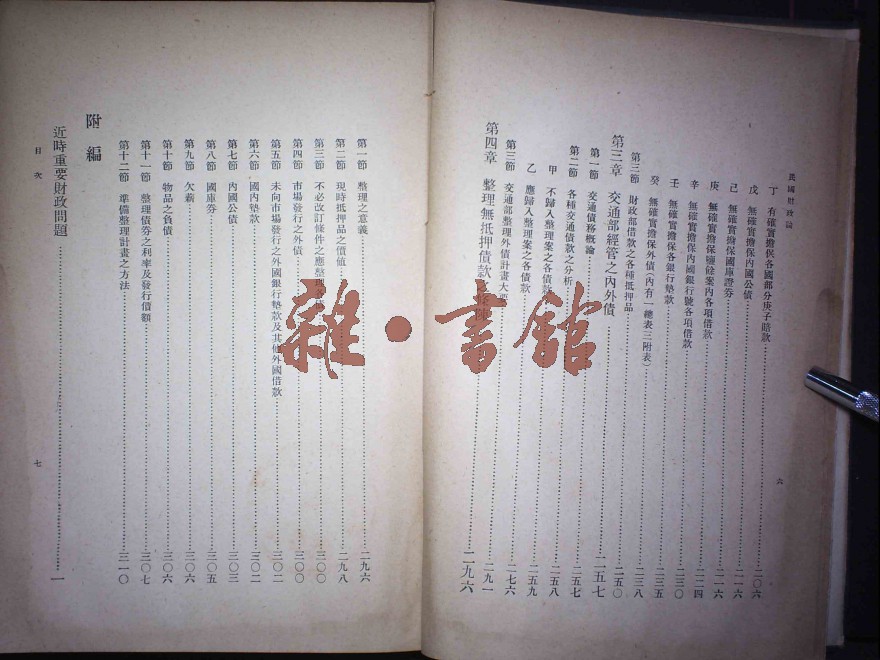 民國財政論
丁 有確實擔保各國部分庚子賠款 二〇六
戊 無確實擔保內國公債 二一六
己 無確實擔保國庫證券 二一六
庚 無確實擔保鹽餘案內各項借款
辛 無確實擔保內國銀行號各項借款 二二四
壬 無確實擔保各銀行墊款 二三〇
癸 無確實擔保外債(內有一總表二附表) 二三五
第三節 財政部借款之各種抵押品 二三八
第三章 交通部經管之內外債 二五〇
第一節 交通債務概論 二五七
第二節 各種交通債款之分析 二五七
甲 不歸入整理案之各債款 二五八
乙 應歸入整理案之各債款 二五九
第三節 交通部整理外債計畫大要 二七六
第四章 整理無抵押債款之 二九六
六
第一節 整理之意義 二九六
第二節 現時抵押品之價値 二九八
第三節 不必改訂條件之應整理 三〇〇
第四節 市場發行之外債 三〇〇
第五節 未向市場發行之外國銀行墊款及其他外國借款 三〇二
第六節 國內墊款 三〇二
第七節 內國公債 三〇三
第八節 國庫券 三〇五
第九節 欠薪 三〇六
第十節 物品之負債 三〇六
第十一節 整理債券之利率及發行價額 三〇七
第十二節 準備整理計畫之方法 三一〇
附編
近時重要財政問題 一
目次
七
雜·書館